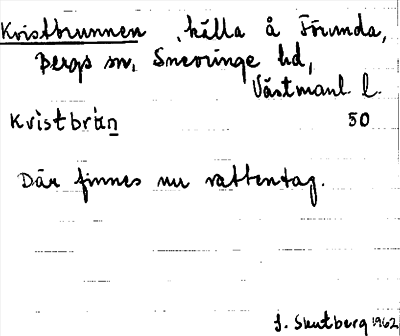 Kristbrunnen, källa å Förunda,
Bergs sn, Snevringe hd,
Västmanl. l.
Kristbrän 50
Där finnes nu vattentag.
J. Skutberg 1962